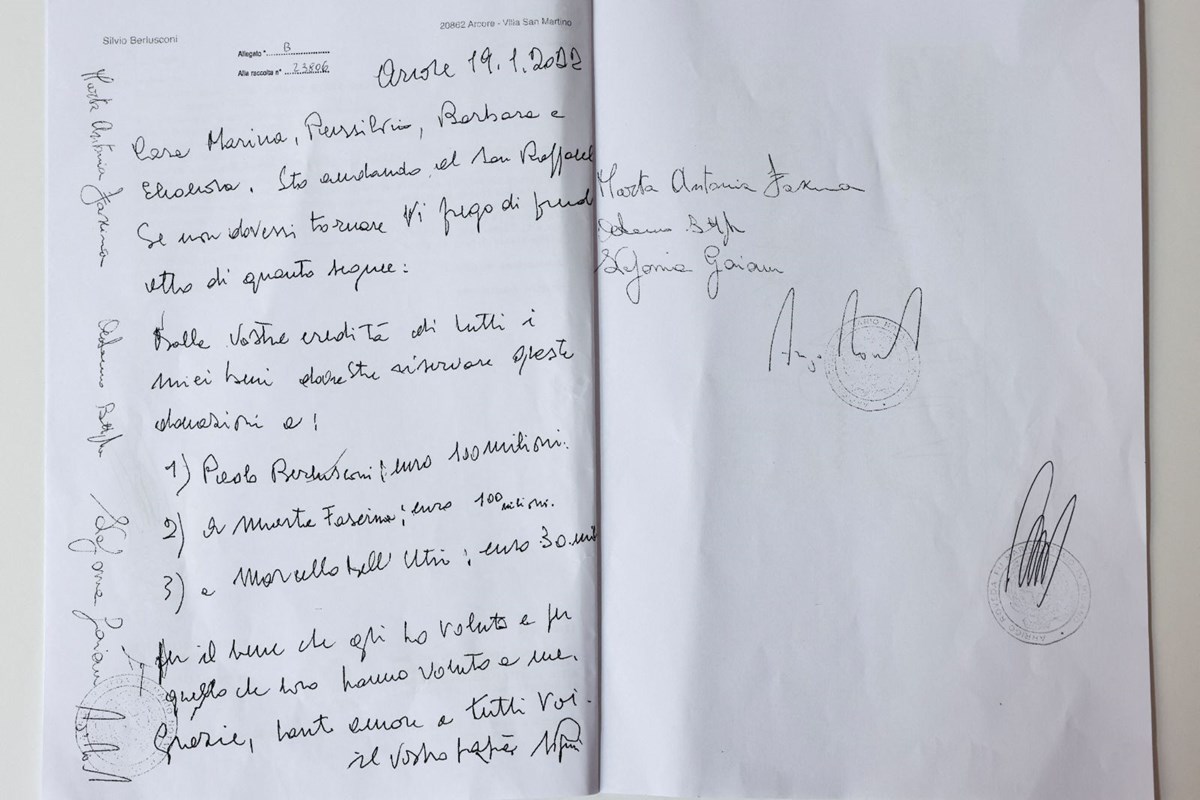 Silvio Berlusconi
20862 Arcore - Villa San Martino
Allegato "B
Alla raccolta n° 23806
Arcore 19.1.2022
Cara Marina, Piersilvio, Barbara e
Eleonora. Sto andando al San Raffael
Se non dovessi tornare Vi prego di prend
atto di quanto segue:
Dalla Vostra eredità di tutti i
miei beni dovreste riservare queste
donazioni a:
1) Paolo Berlusconi; euro 100 milioni.
2) a Marta Fascina; euro 100 milioni.
3) a Marcello Dell'Utri; euro 30 mil
Per il bene che gli ho voluto e per
quello che loro hanno voluto a me.
Grazie, tanto amore a tutti voi.
il Vostro papà
Marta Antonia Fascina
Stefania Gaiani
Marta Antonia Fascina
Stefania Gaiani
ARRIGO ROVEDA